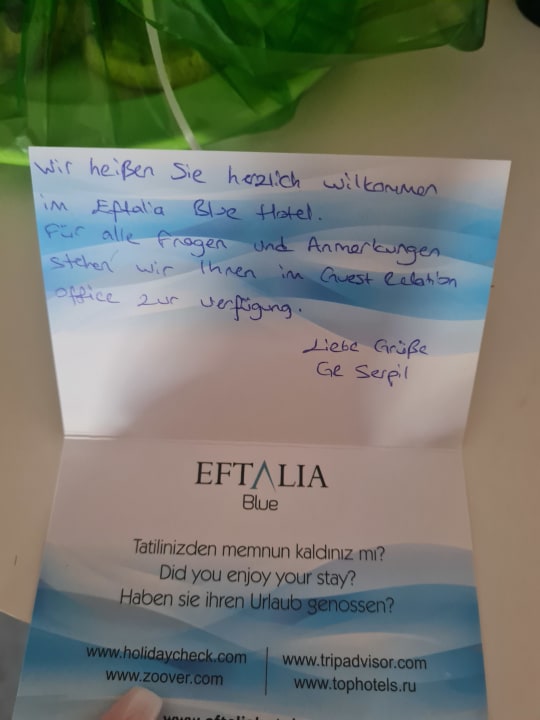 Wir heißen Sie herzlich willkommen
im Eftalia Blue Hotel.
Für alle Fragen und Anmerkungen
stehen wir Ihnen im Guest Relation
office zur verfügung.
Liebe Grüße
Ge Serpil
EFTALIA
Blue
Tatilinizden memnun kaldınız mı?
Did you enjoy your stay?
Haben sie ihren Urlaub genossen?
www.holidaycheck.com
www.zoover.com
www.tripadvisor.com
www.tophotels.ru